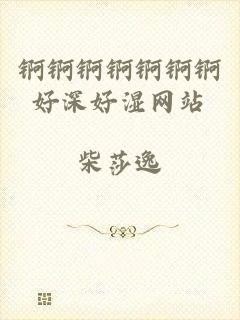 锕锕锕锕锕锕锕
好深好湿网站
柴莎逸